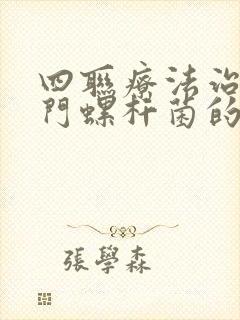 四聯療法治
門螺杆菌的
張學森